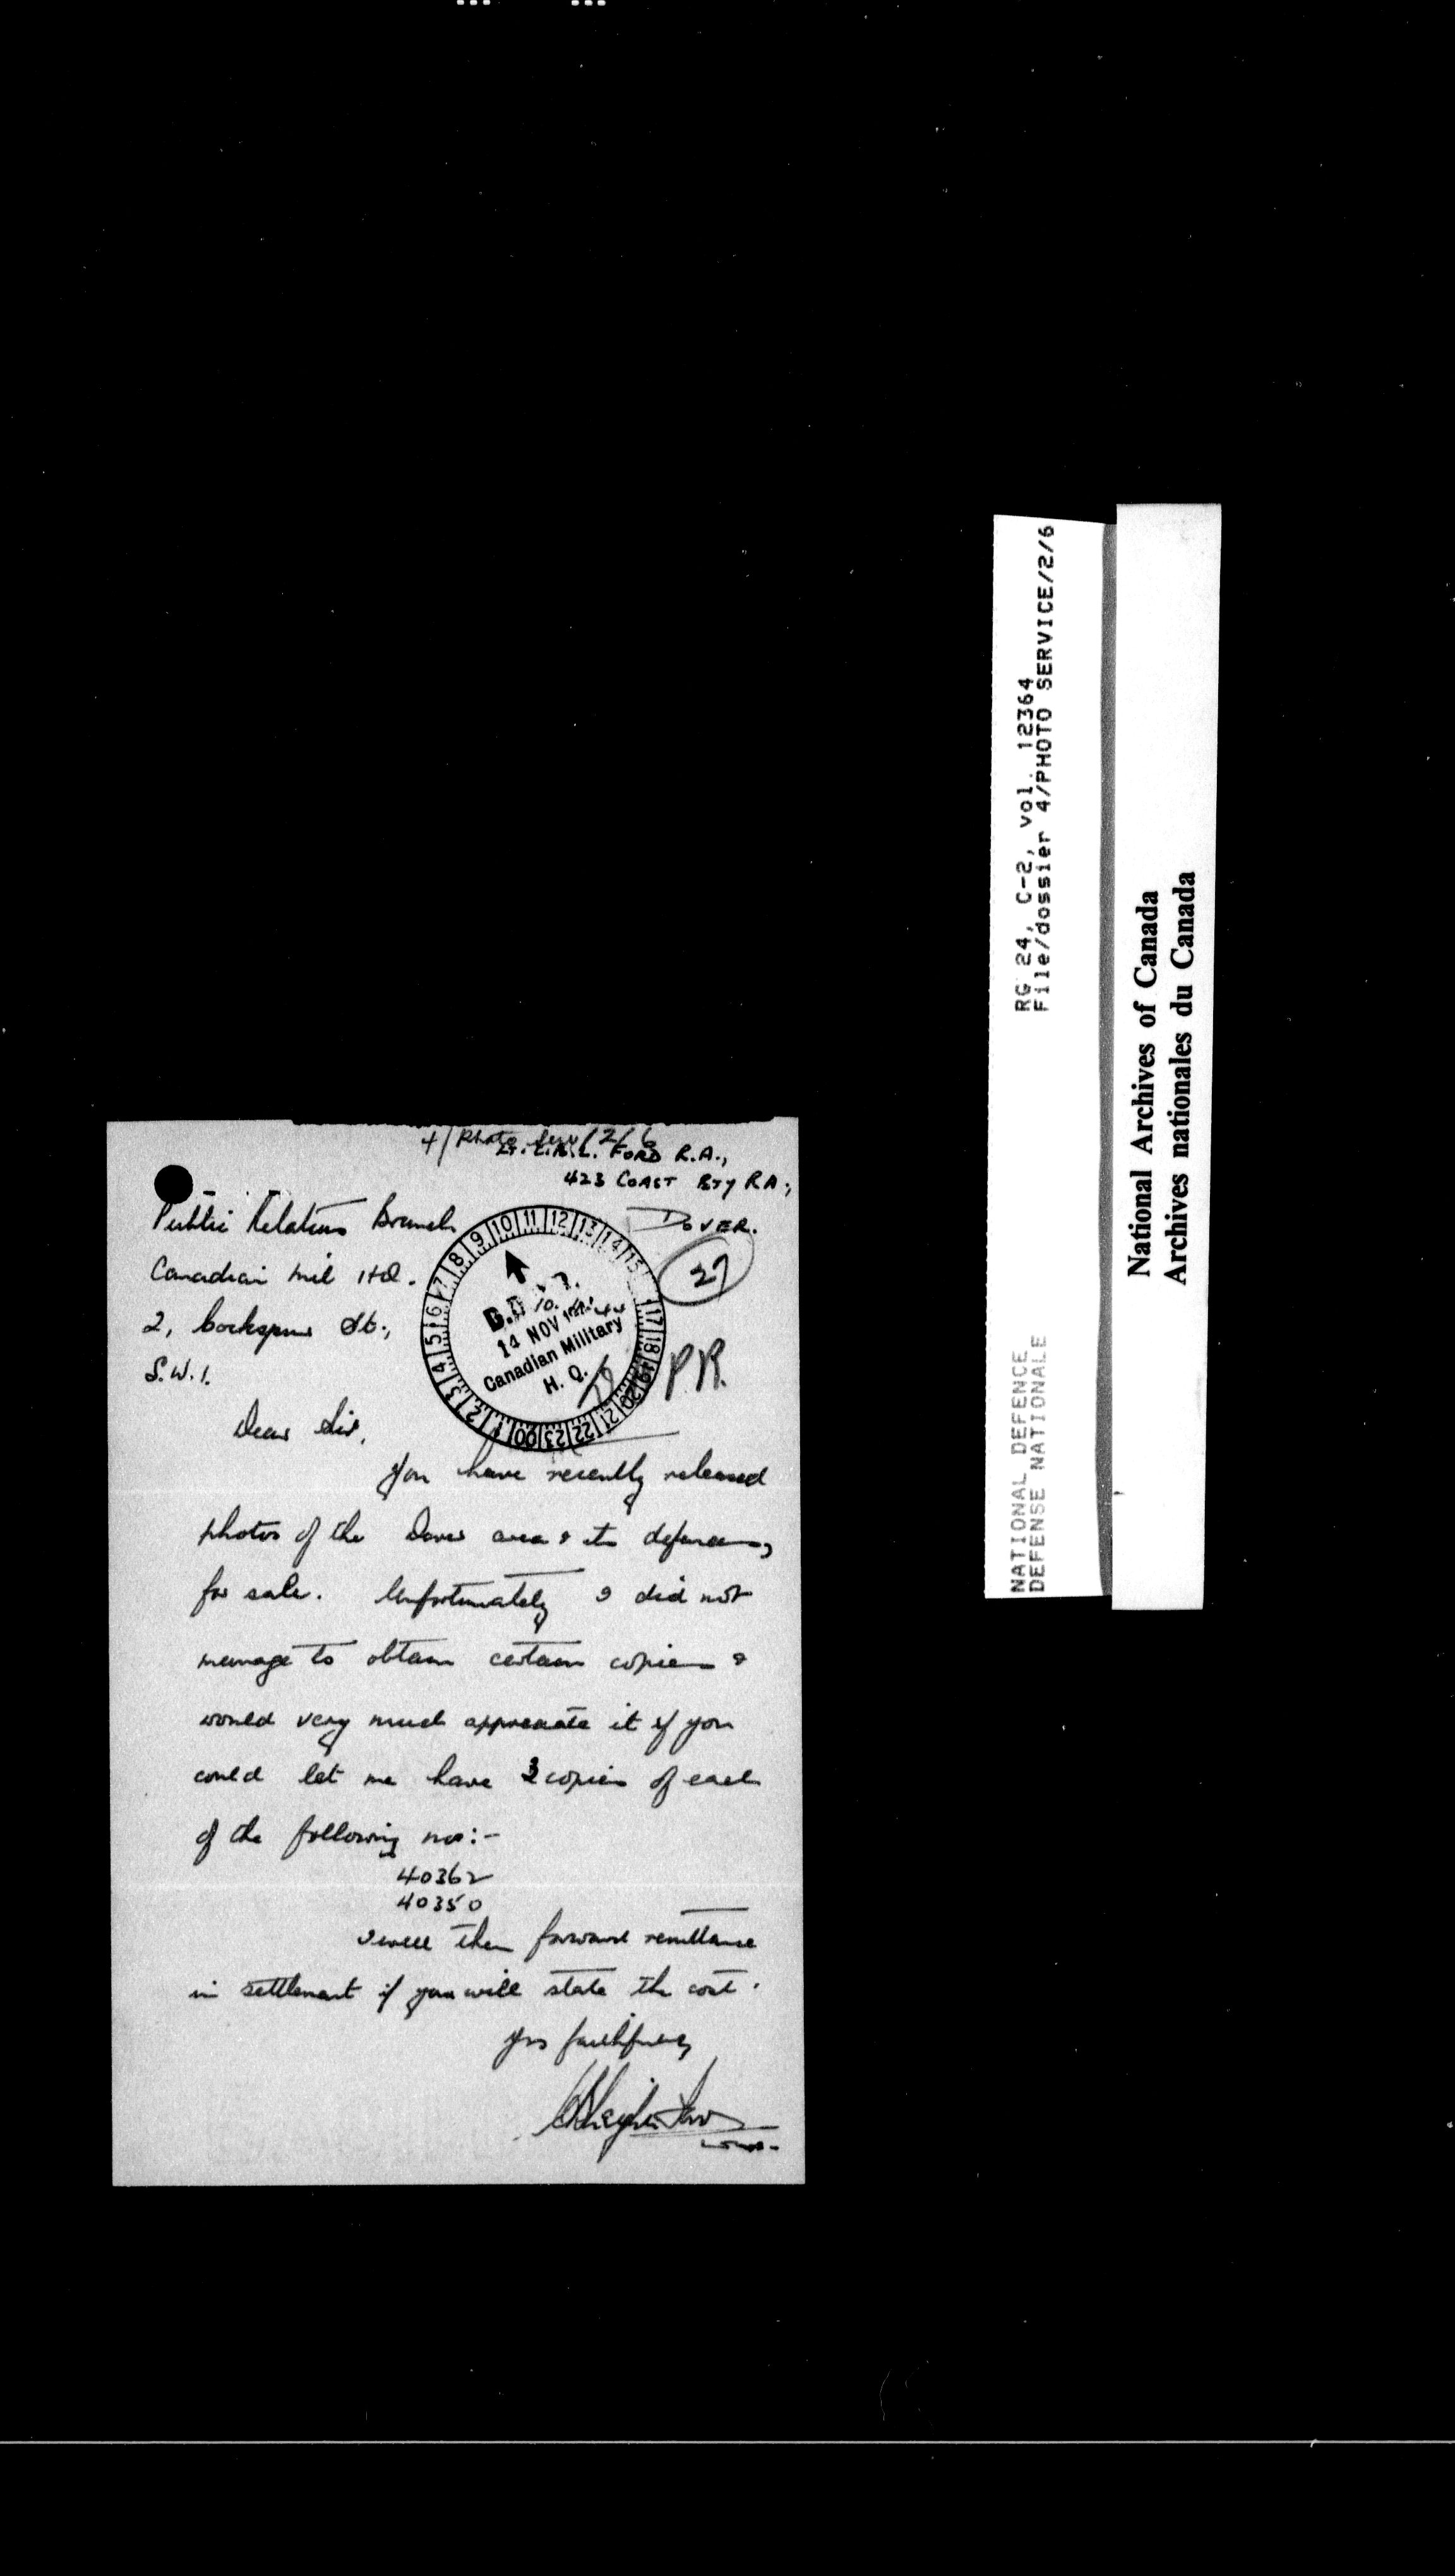 4/Photo Serv/2/6
Lt. L. FORD R.A.,
423 COAST BTY RA.,
DOVER.
27
Public Relations Branch
Canadian Mil HQ.
2, Cockspur St.,
S.W.1.
10 11 12 13 14 15 17 18 19 20 21 22 23 00 1 2 3 4 5 6 7 8 9
14 NOV
Canadian Military
H. Q.
PR.
Dear Sir,
You have recently released
photos of the Dover area & its defences,
for sale. Unfortunately I did not
manage to obtain certain copies &
would very much appreciate it if you
could let me have 3 copies of each
of the following nos:-
40362
40350
I will then forward remittance
in settlement if you will state the cost.
Yrs faithfully
RG 24, C-2, vol. 12364
File/dossier 4/PHOTO SERVICE/2/6
NATIONAL DEFENCE
DEFENSE NATIONALE
National Archives of Canada
Archives nationales du Canada